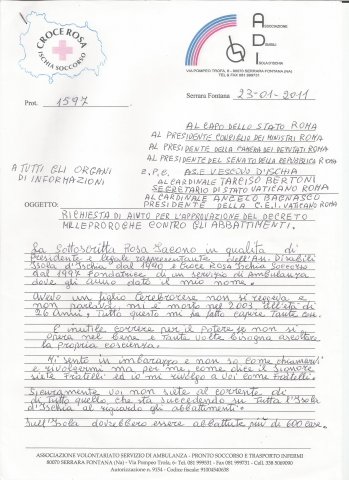 CROCE ROSA
ISCHIA SOCCORSO
A
D
I
ASSOCIAZIONE
DISABILI
ISOLA D'ISCHIA
VIA POMPEO TROFA, 6 - 80070 SERRARA FONTANA (NA)
TEL & FAX 081 999731
Prot. 1597
Serrara Fontana 23-01-2011
AL CAPO DELLO STATO ROMA
AL PRESIDENTE CONSIGLIO DEI MINISTRI ROMA
AL PRESIDENTE DELLA CAMERA DEI DEPUTATI ROMA
AL PRESIDENTE DEL SENATO DELLA REPUBBLICA ROMA
A TUTTI GLI ORGANI
DI INFORMAZIONI
e.P.C. A S.E VESCOVO D'ISCHIA
AL CARDINALE TARCISO BERTONI
SEGRETARIO DI STATO VATICANO ROMA
AL CARDINALE ANGELO BAGNASCO
PRESIDENTE DELLA C.E.I VATICANO ROMA
OGGETTO:
RICHIESTA DI AIUTO PER L'APPROVAZIONE DEL DECRETO
MILLEPROROGHE CONTRO GLI ABBATTIMENTI.
La Sottoscritta Rosa Iacono in qualità di
Presidente e legale rappresentante dell'Ass. Disabili
Isola d'Ischia dal 1990 e Croce Rosa Ischia Soccorso
dal 1997 Fondatrice di un servizio di Ambulanza
dove gli anno dato il mio nome.
Avevo un figlio Cerebroleso non si reggeva e
non parlava, mi è morto nel 2003 all'età di
26 Anni. Tutto questo mi ha fatto capire tante cose.
È inutile correre per il Potere se non si
opera nel bene e tante volte bisogna ascoltare
la propria coscienza.
Mi sento in imbarazzo e non so come chiamarvi
e rivolgermi ma per me, come dice il Signore
siete fratelli ed io mi rivolgo a voi come Fratelli.
Sicuramente voi non siete al corrente di
di tutto quello che sta succedendo su Tutta l'Isola
d'Ischia al riguardo gli abbattimenti.
Sull'Isola dovrebbero essere abbattute più di 600 case.
ASSOCIAZIONE VOLONTARIATO SERVIZIO DI AMBULANZA - PRONTO SOCCORSO E TRASPORTO INFERMI
80070 SERRARA FONTANA (Na) - Via Pompeo Trofa, 6 - Tel. 081 999331 - Fax 081 999731 - Cell. 338 5069090
Autorizzazione n. 9154 - Codice fiscale: 91004540638